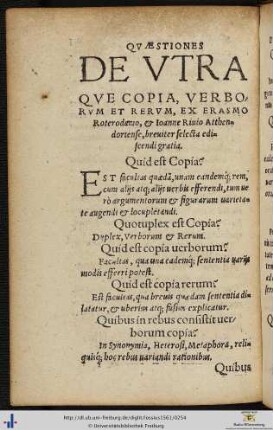 QVÆSTIONES
DE VTRA
QVE COPIA, VERBO-
RVM ET RERVM, EX ERASMO
Roterodamo, & Ioanne Riuio Atthen
dortense, breuiter selecta edi
scendi gratia.
Quid est Copia?
EST facultas quædã, unam eandemq́; rem,
cum alijs atq; alijs uerbis efferendi, tum ue
rò argumentorum & figurarum uarieta-
te augendi & locupletandi.
Quotuplex est Copia?
Duplex, Verborum & Rerum.
Quid est copia uerborum?
Facultas, qua una eademq́; sententia uarijs
modis efferri potest.
Quid est copia rerum?
Est facultas, qua breuis quædam sententia di
latatur, & uberius atq; fusius explicatur.
Quibus in rebus consistit uer
borum copia?
In Synonymia, Heterosi, Metaphora, reli-
quisq́; hoc rebus uariandi rationibus.
Quibus
http://dl.ub.uni-freiburg.de/diglit/lossius1561/0254
© Universitätsbibliothek Freiburg
Baden-Württemberg